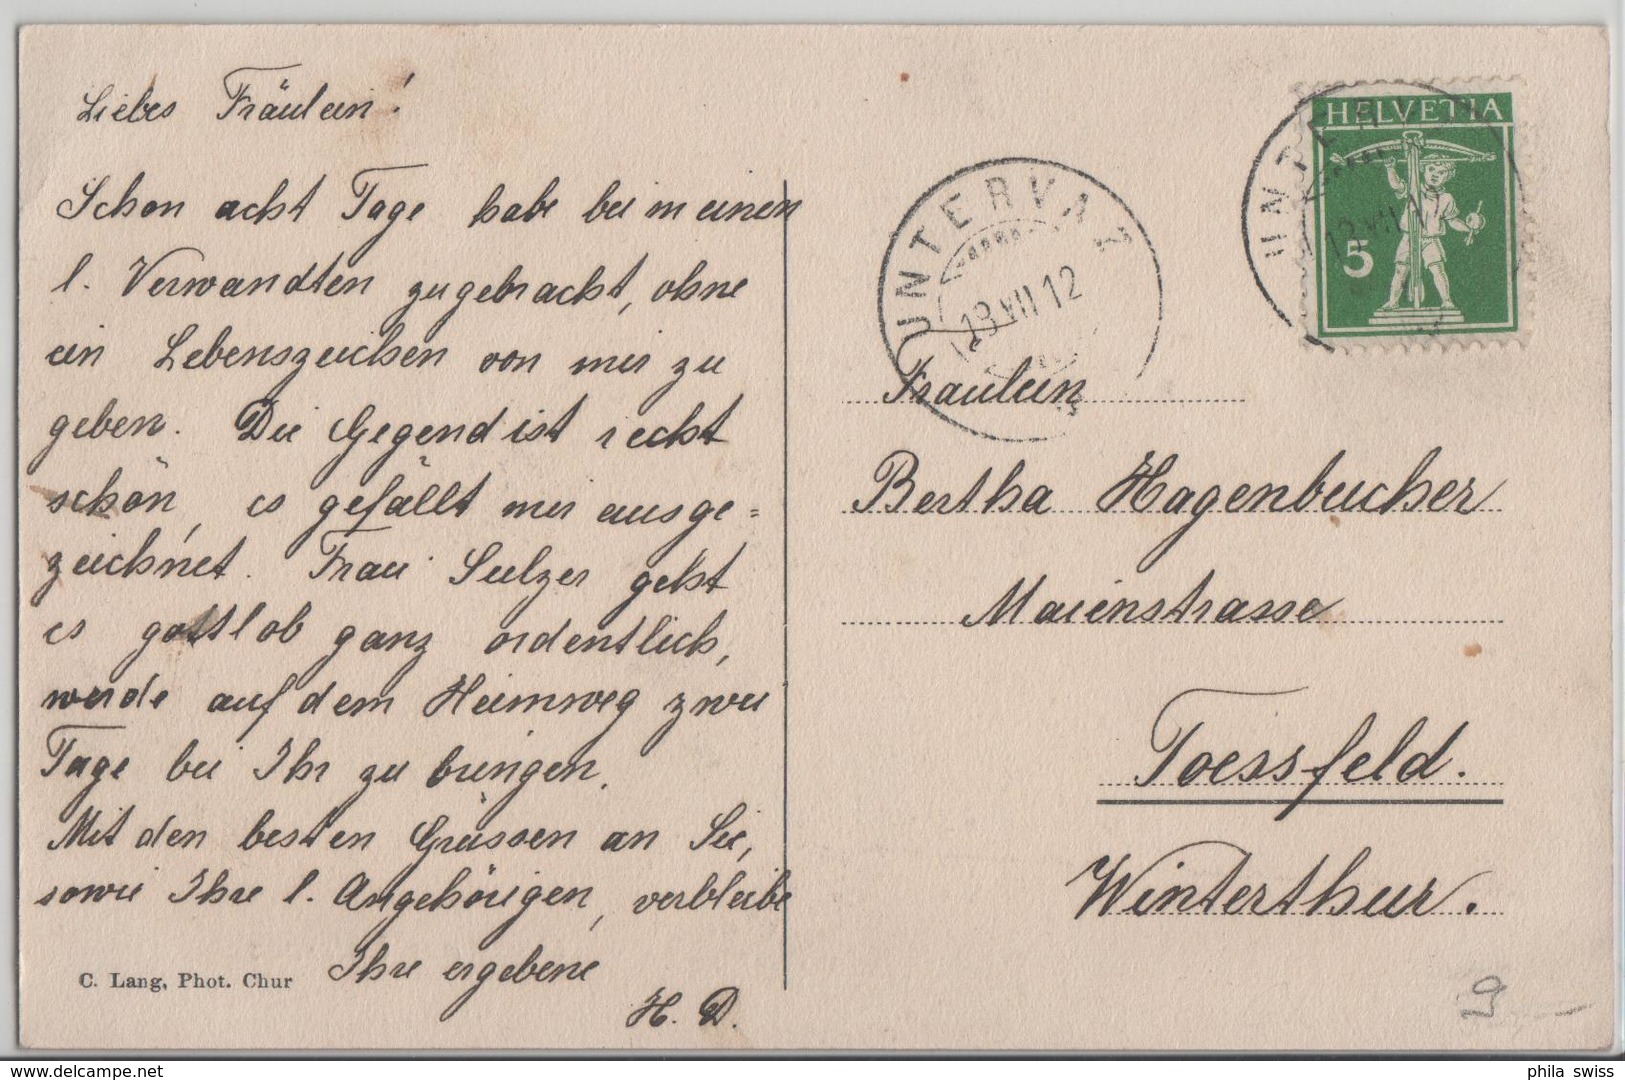 Liebes Fräulein!
Schon acht Tage habe bei meinen
l. Verwandten zugebracht, ohne
ein Lebenszeichen von mir zu
geben. Die Gegend ist recht
schön, es gefällt mir ausge=
zeichnet. Frau Sulzer geht
es gottlob ganz ordentlich,
werde auf dem Heimweg zwei
Tage bei Ihr zu bringen.
Mit den besten Grüssen an Sie,
sowie Ihre l. Angehörigen, verbleibe
Ihre ergebene
H. D.
C. Lang, Phot. Chur
HELVETIA
5
UNTERVAZ
13 VII 12
UNTERVAZ
13 VII 12
Fräulein
Bertha Hagenbucher
Maienstrasse
Toessfeld.
Winterthur.
www.delcampe.net
phila swiss